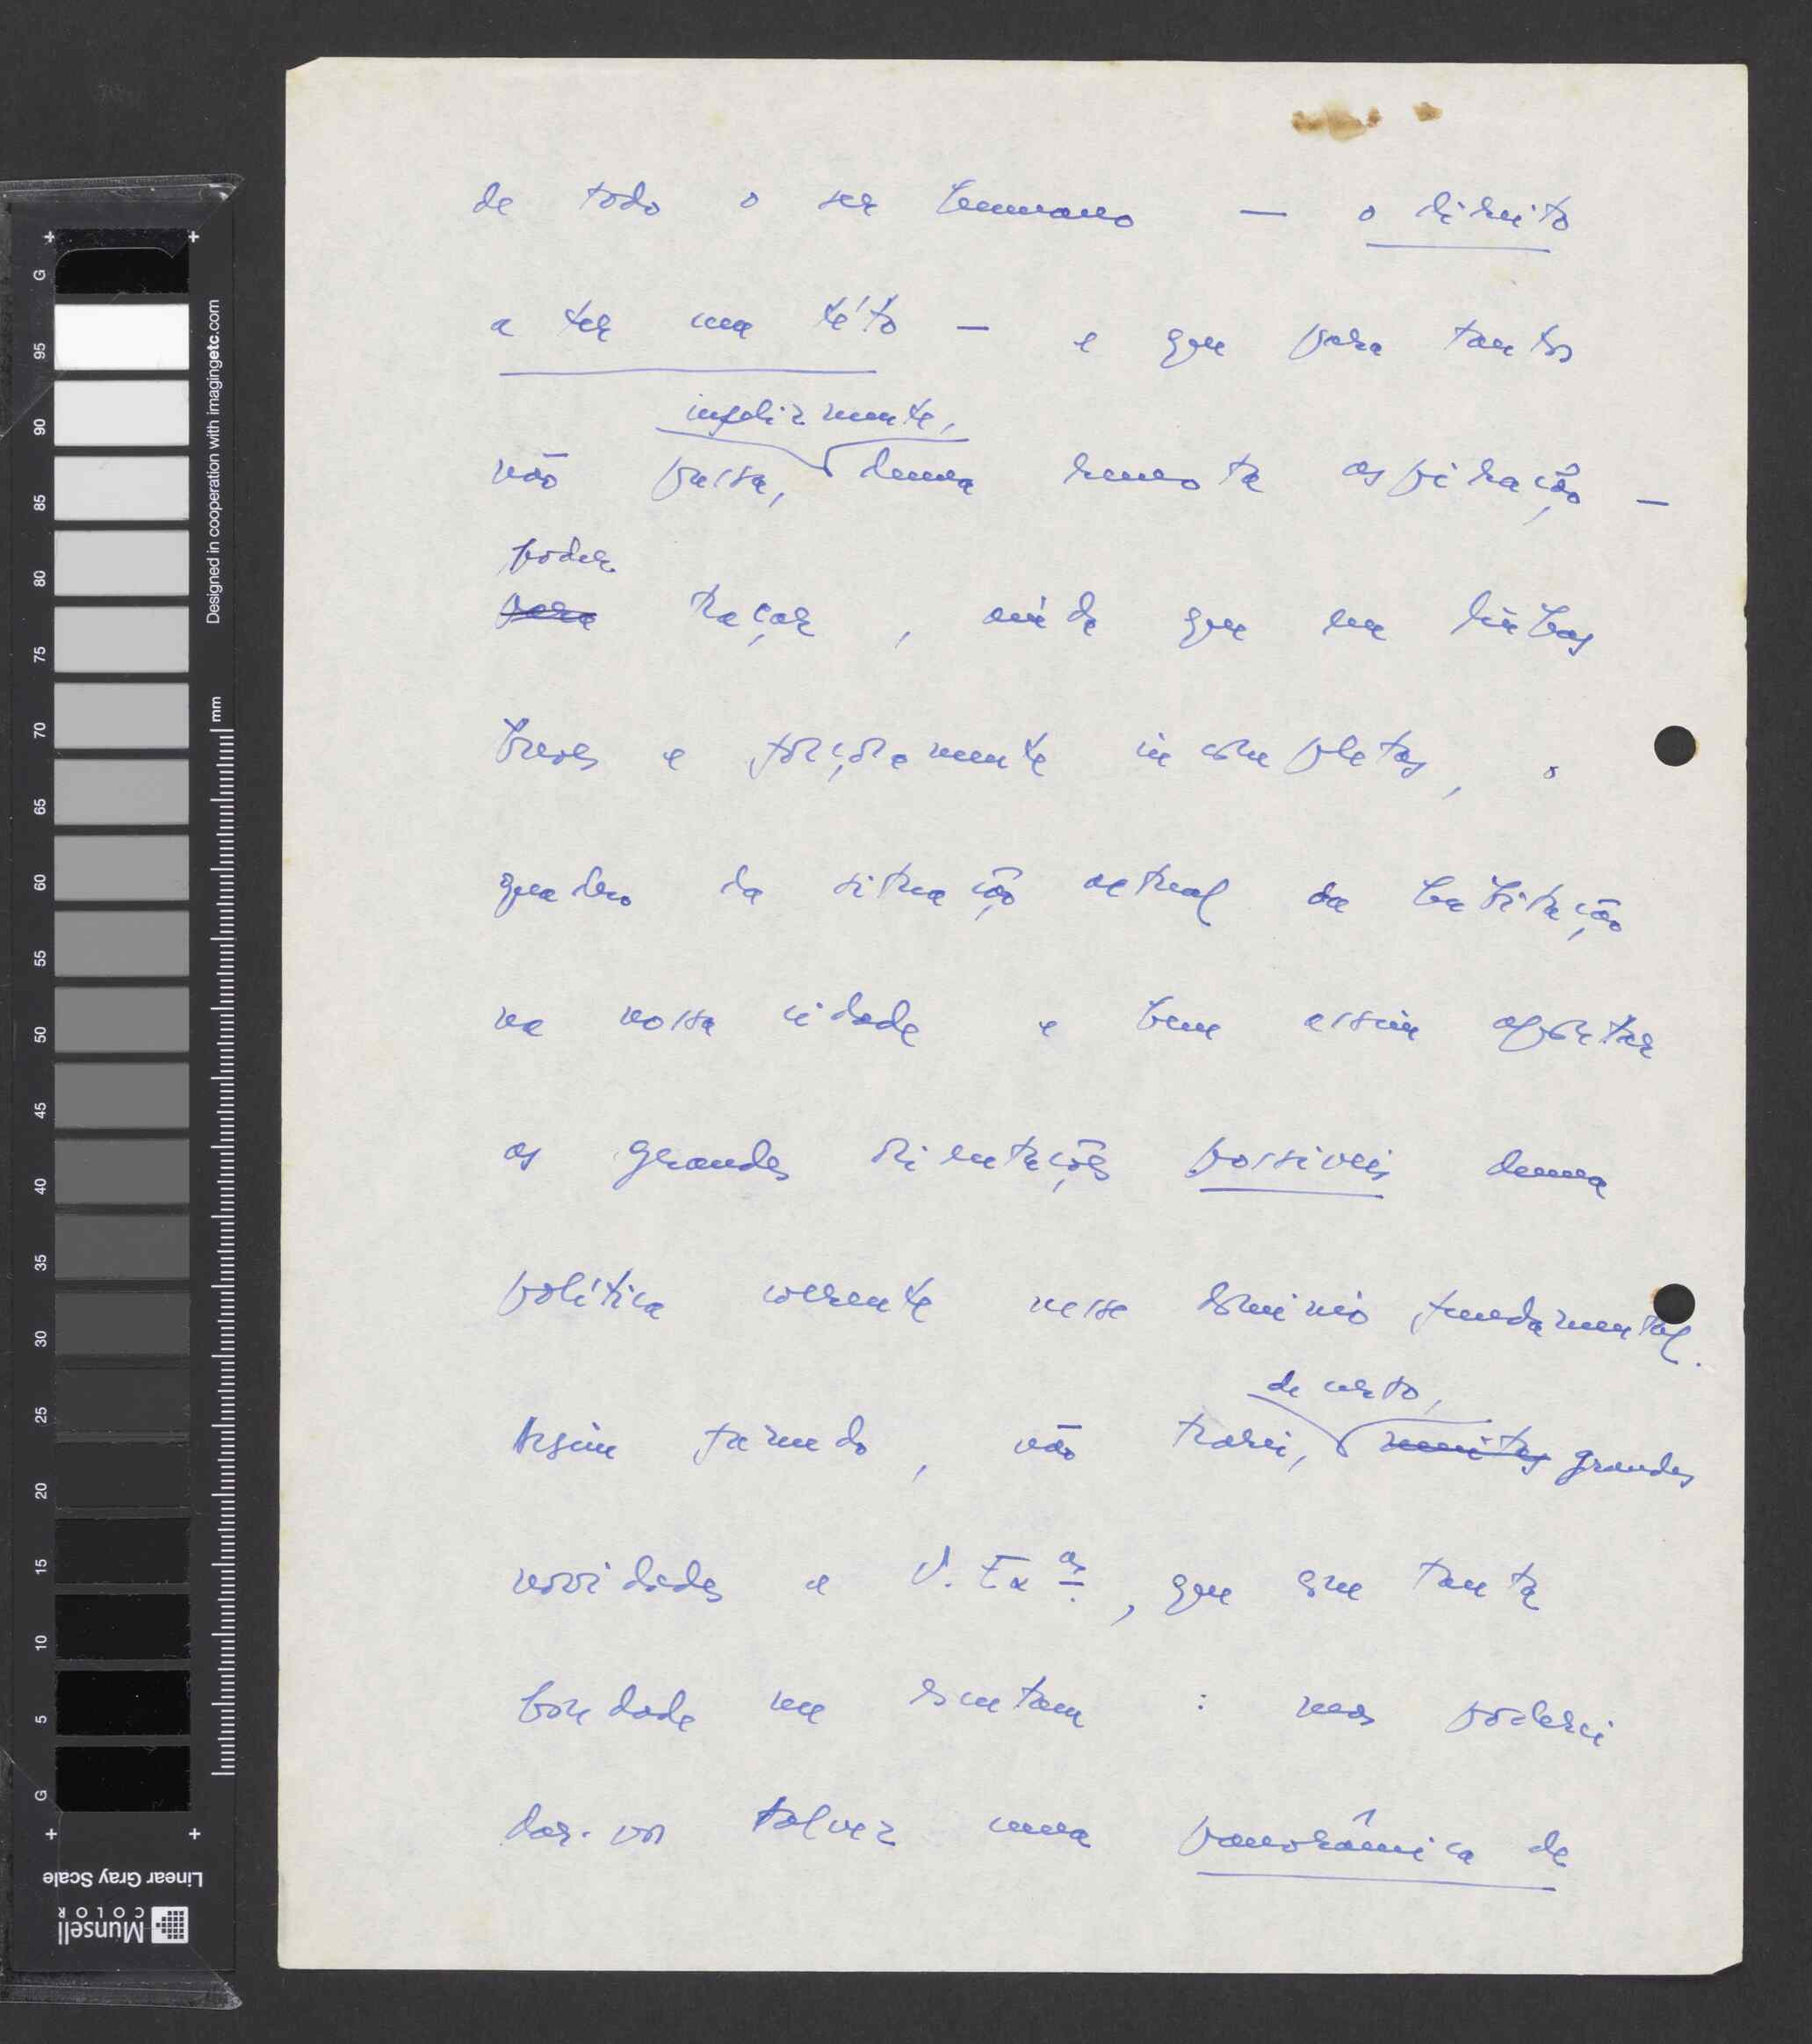 de todo o ser humano — o direito
a ter um této — e que para tantos
infelizmente,
não passa, duma remota aspiração —
poder
para traçar, ainda que em linhas
breves e forçosamente incompletas, o
quadro da situação actual da habitação
na nossa cidade e bem assim apontar
as grandes orientações possíveis duma
política coerente nesse domínio fundamental.
de certo,
Assim fazendo, não trarei, muitas grandes
novidades a V. Exas., que com tanta
bondade me escutam: mas poderei
dar-vos talvez uma panorâmica de
G
95
90
85
80
75
70
65
60
55
50
45
40
35
30
25
20
15
10
5
G
mm
Designed in cooperation with imagingetc.com
Linear Gray Scale
Munsell
COLOR